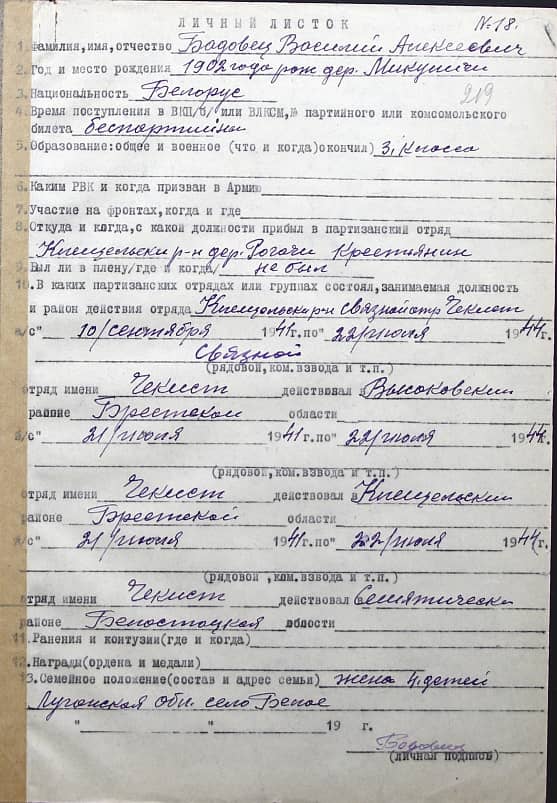 ЛИЧНЫЙ ЛИСТОК
№ 18.
1. Фамилия,имя,отчество Бадовец Василий Алексеевич
2. Год и место рождения 1902 года рож дер. Микуличи
3. Национальность Белорус
219
4. Время поступления в ВКП/б/ или ВЛКСМ,№ партийного или комсомольского
билета беспартийный
5. Образование:общее и военное (что и когда)окончил) 3, класса
6. Каким РВК и когда призван в Армию
7. Участие на фронтах,когда и где
8. Откуда и когда,с какой должности прибыл в партизанский отряд
Клещельски р-н дер. Рогачи Крестьянин
9. Был ли в плену/где и когда/ не был
10. В каких партизанских отрядах или группах состоял,занимаемая должность
и район действия отряда Клещельски р-н связной отр Чекист
а/с" 10/сентября 1941г.по" 22/июля 1944г.
Связной
(рядовой,ком.взвода и т.п.)
отряд имени Чекист действовал в Высоковский
районе Брестской области
б/с" 21/июля 1941г.по" 22/июля 1944г.
(рядовой,ком.взвода и т.п.)
отряд имени Чекист действовал в Клещельский
районе Брестской области
в/с" 21/июля 1941г.по" 22/июля 1944г.
(рядовой ,ком.взвода и т.п.)
отряд имени Чекист действовал Семятически
районе Белостоцкая области
11. Ранения и контузии(где и когда)
12. Награды(ордена и медали)
13. Семейное положение(состав и адрес семьи) жена 4, детей
Луганская обл. село Белое
" " 19 г.
Бадовец
(личная подпись)